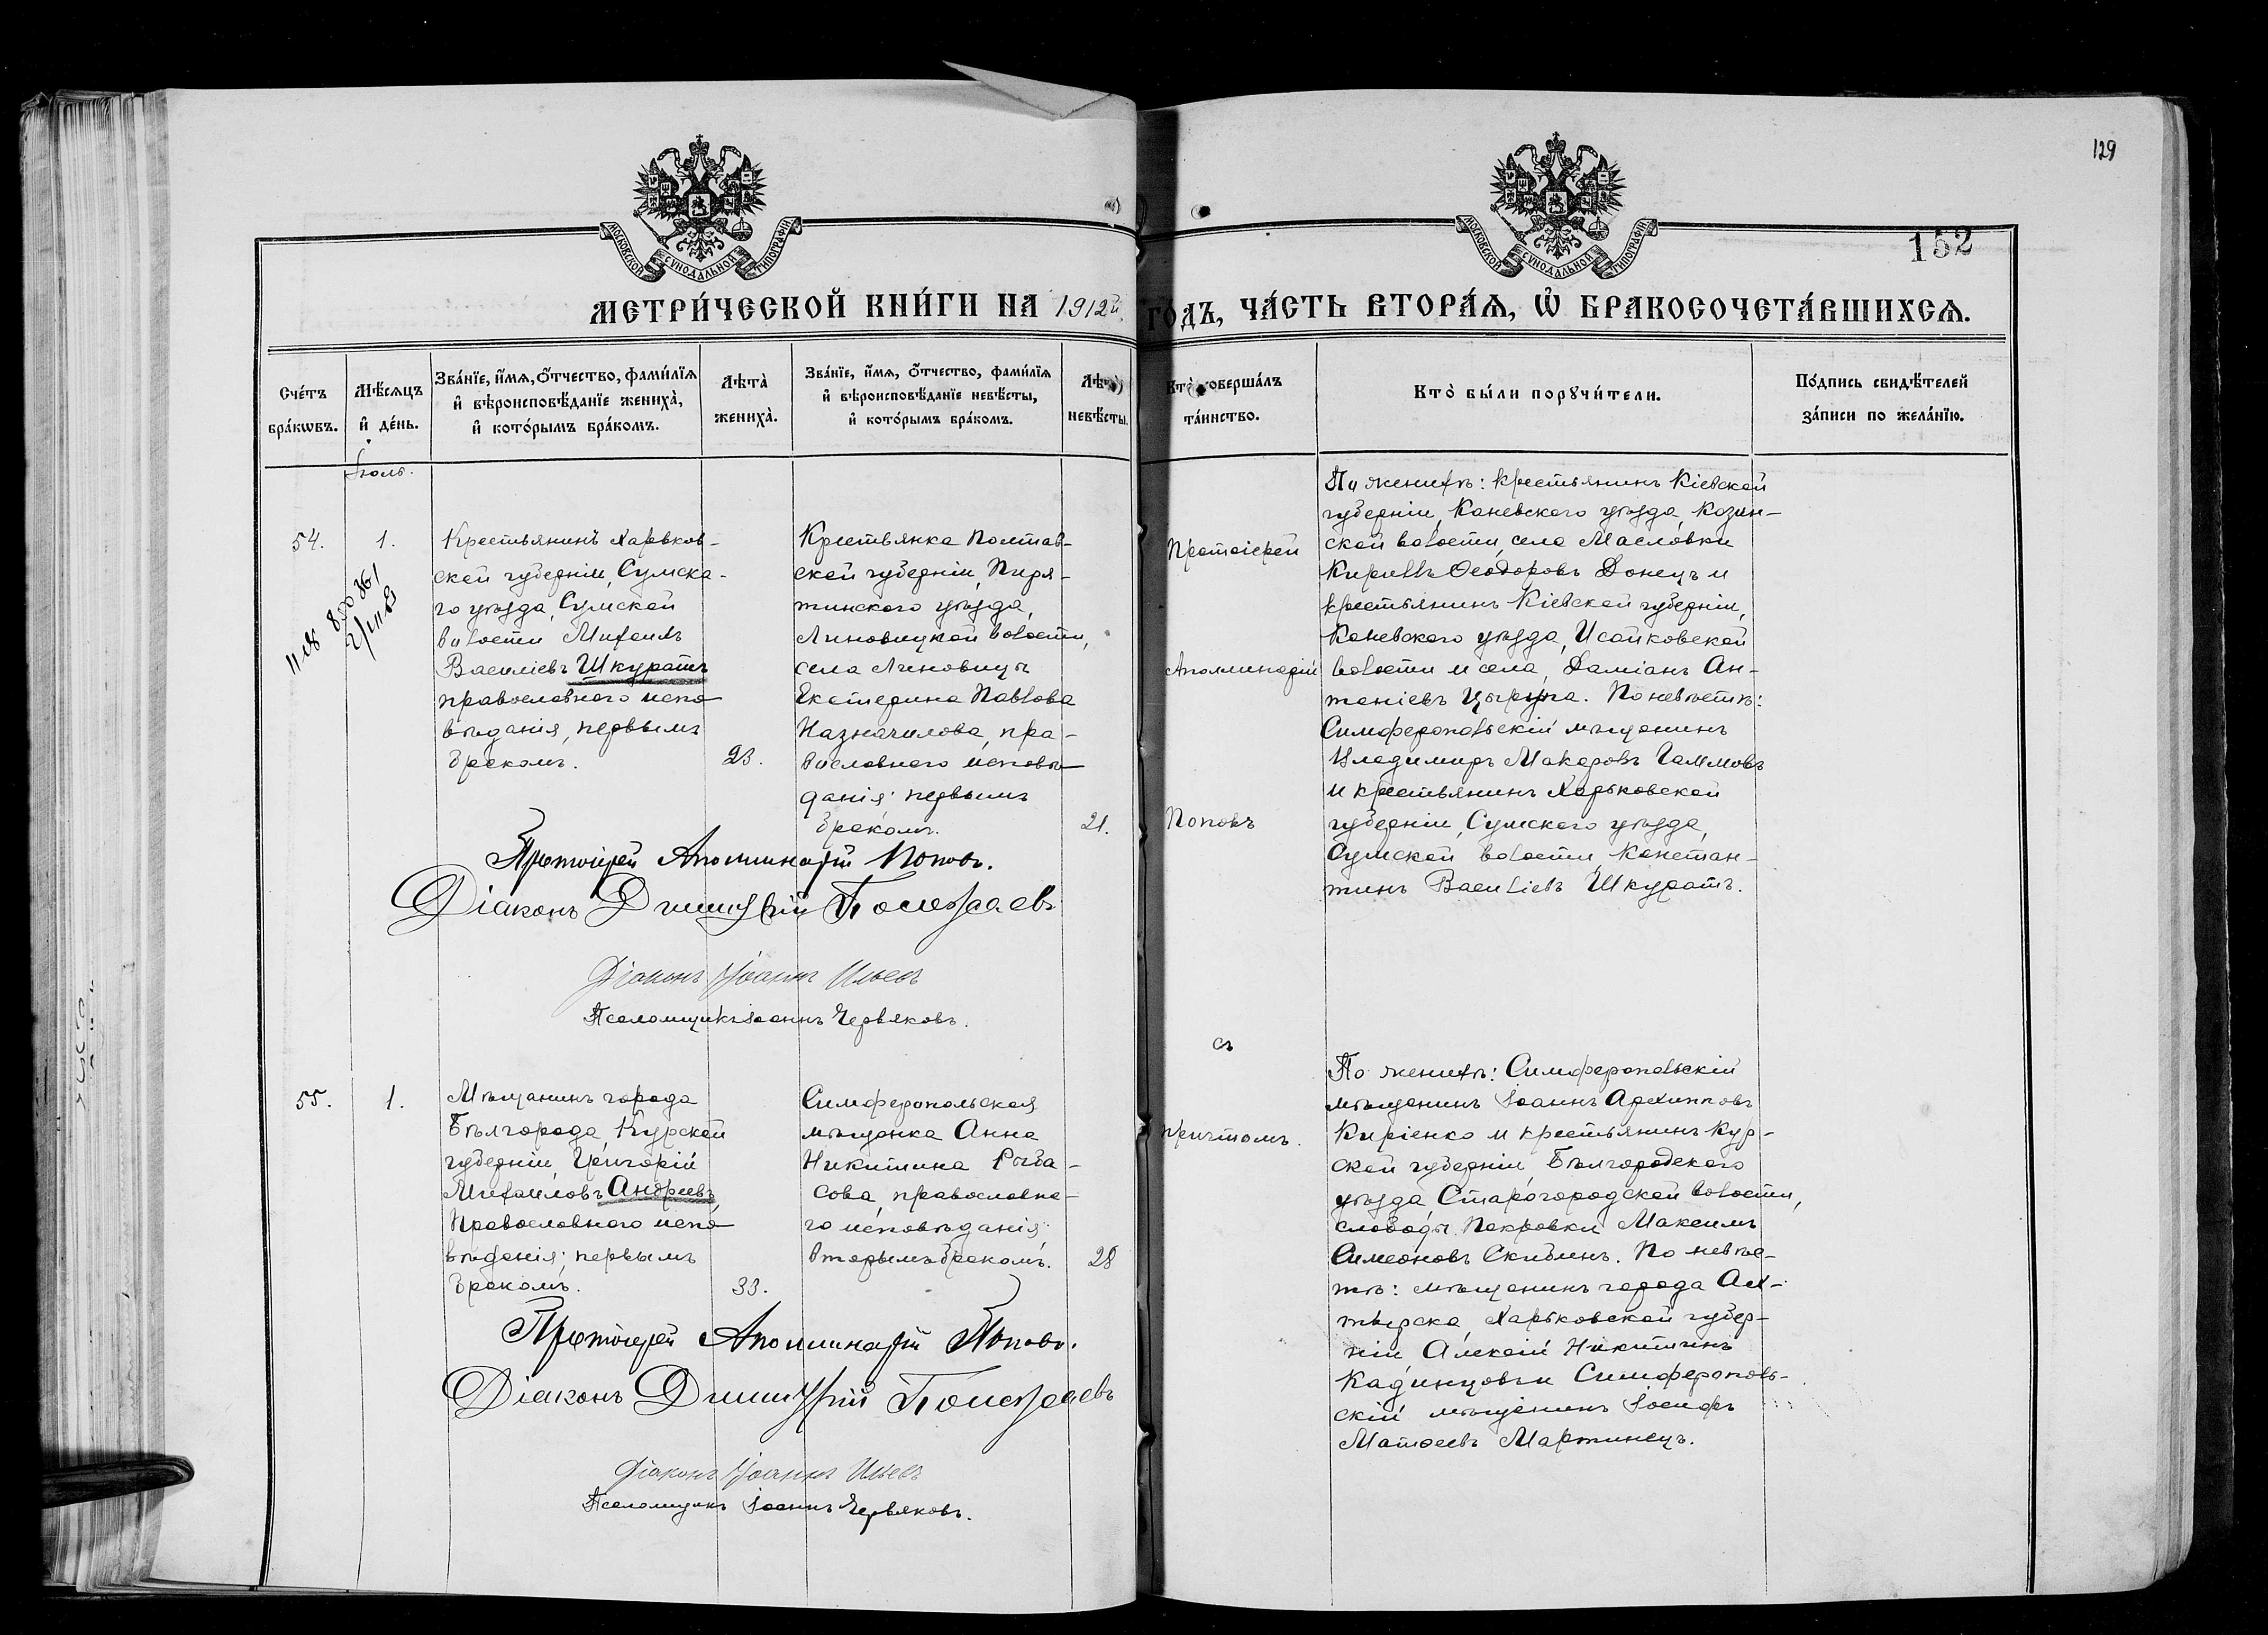 129
152
МОСКОВСКОЙ СѴНОДАЛЬНОЙ ТИПОГРАФІИ
МОСКОВСКОЙ СѴНОДАЛЬНОЙ ТИПОГРАФІИ
МЕТРИ́ЧЕСКОЙ КНИ́ГИ НА 1912й ГО́ДЪ, ЧА́СТЬ ВТОРА́Ѧ, Ѡ҆ БРАКОСОЧЕТА́ВШИХСѦ.
Сче́тъ
бра́кѡвъ.
Мѣ́сѧцъ
и҆ де́нь.
Зва́нїе, и҆́мѧ, ѻ҆́тчество, фами́лїѧ
и҆ вѣроисповѣ́данїе жениха̀,
и҆ кото́рымъ бра́комъ.
Лѣта̀
жениха̀.
Зва́нїе, и҆́мѧ, ѻ҆́тчество, фами́лїѧ
и҆ вѣроисповѣ́данїе невѣ́сты,
и҆ кото́рымъ бра́комъ.
невѣ́сты.
Кто̀ соверша́лъ
та́инство.
Кто̀ бы́ли порꙋчи́тели.
По́дпись свидѣ́телей
за́писи по жела́нїю.
Іюль.
54.
1.
Крестьянинъ Харьков-
ской губерніи, Сумска-
го уѣзда, Сумской
волости Михаилъ
Василіевъ Шкуратъ
православнаго испо-
вѣданія, первымъ
бракомъ.
23.
Крестьянка Полтав-
ской губерніи, Пиря-
тинскаго уѣзда,
Линовицкой волости,
села Линовицы
Екатерина Павлова
Назначилова, пра-
вославнаго исповѣ-
данія; первымъ
бракомъ.
21.
Протоіерей
Аполлинарій
Поповъ
съ
причтомъ.
По женихѣ: крестьянинъ Кіевской
губерніи, Каневскаго уѣзда, Козин-
ской волости, села Масловки
Кириллъ Ѳеодоровъ Донецъ и
крестьянинъ Кіевской губерніи,
Каневскаго уѣзда, Исайковской
волости и села, Даміанъ Ан-
тоніевъ Цырупа. По невѣстѣ:
Симферопольскій мѣщанинъ
Владимиръ Макаровъ Гаммовъ
и крестьянинъ Харьковской
губерніи, Сумскаго уѣзда,
Сумской волости Констан-
тинъ Василіевъ Шкуратъ.
Протоіерей Аполлинарій Поповъ.
Діаконъ Димитрій
Діаконъ Іоаннъ
Псаломщикъ Іоаннъ Червяковъ.
55.
1.
Мѣщанинъ города
Бѣлгорода, Курской
губерніи, Григорій
Михаиловъ Андреевъ,
Православнаго испо-
вѣданія; первымъ
бракомъ.
33.
Симферопольская
мѣщанка Анна
Никитина Рыба-
сова, православна-
го исповѣданія;
вторымъ бракомъ.
28
По женихѣ: Симферопольскій
мѣщанинъ Іоаннъ Архипповъ
Киріенко и крестьянинъ Кур-
ской губерніи, Бѣлгородскаго
уѣзда, Старогородской волости,
слободы Покровки Максимъ
Симеоновъ Скибинъ. По невѣс-
тѣ: мѣщанинъ города Ах-
тырска, Харьковской губер-
ніи, Алексій Никитинъ
Кадинцовъ и Симферополь-
скій мѣщанинъ Іосифъ
Матѳеевъ Мартинецъ.
Протоіерей Аполлинарій Поповъ.
Діаконъ Димитрій
Діаконъ Іоаннъ
Псаломщикъ Іоаннъ Червяковъ.